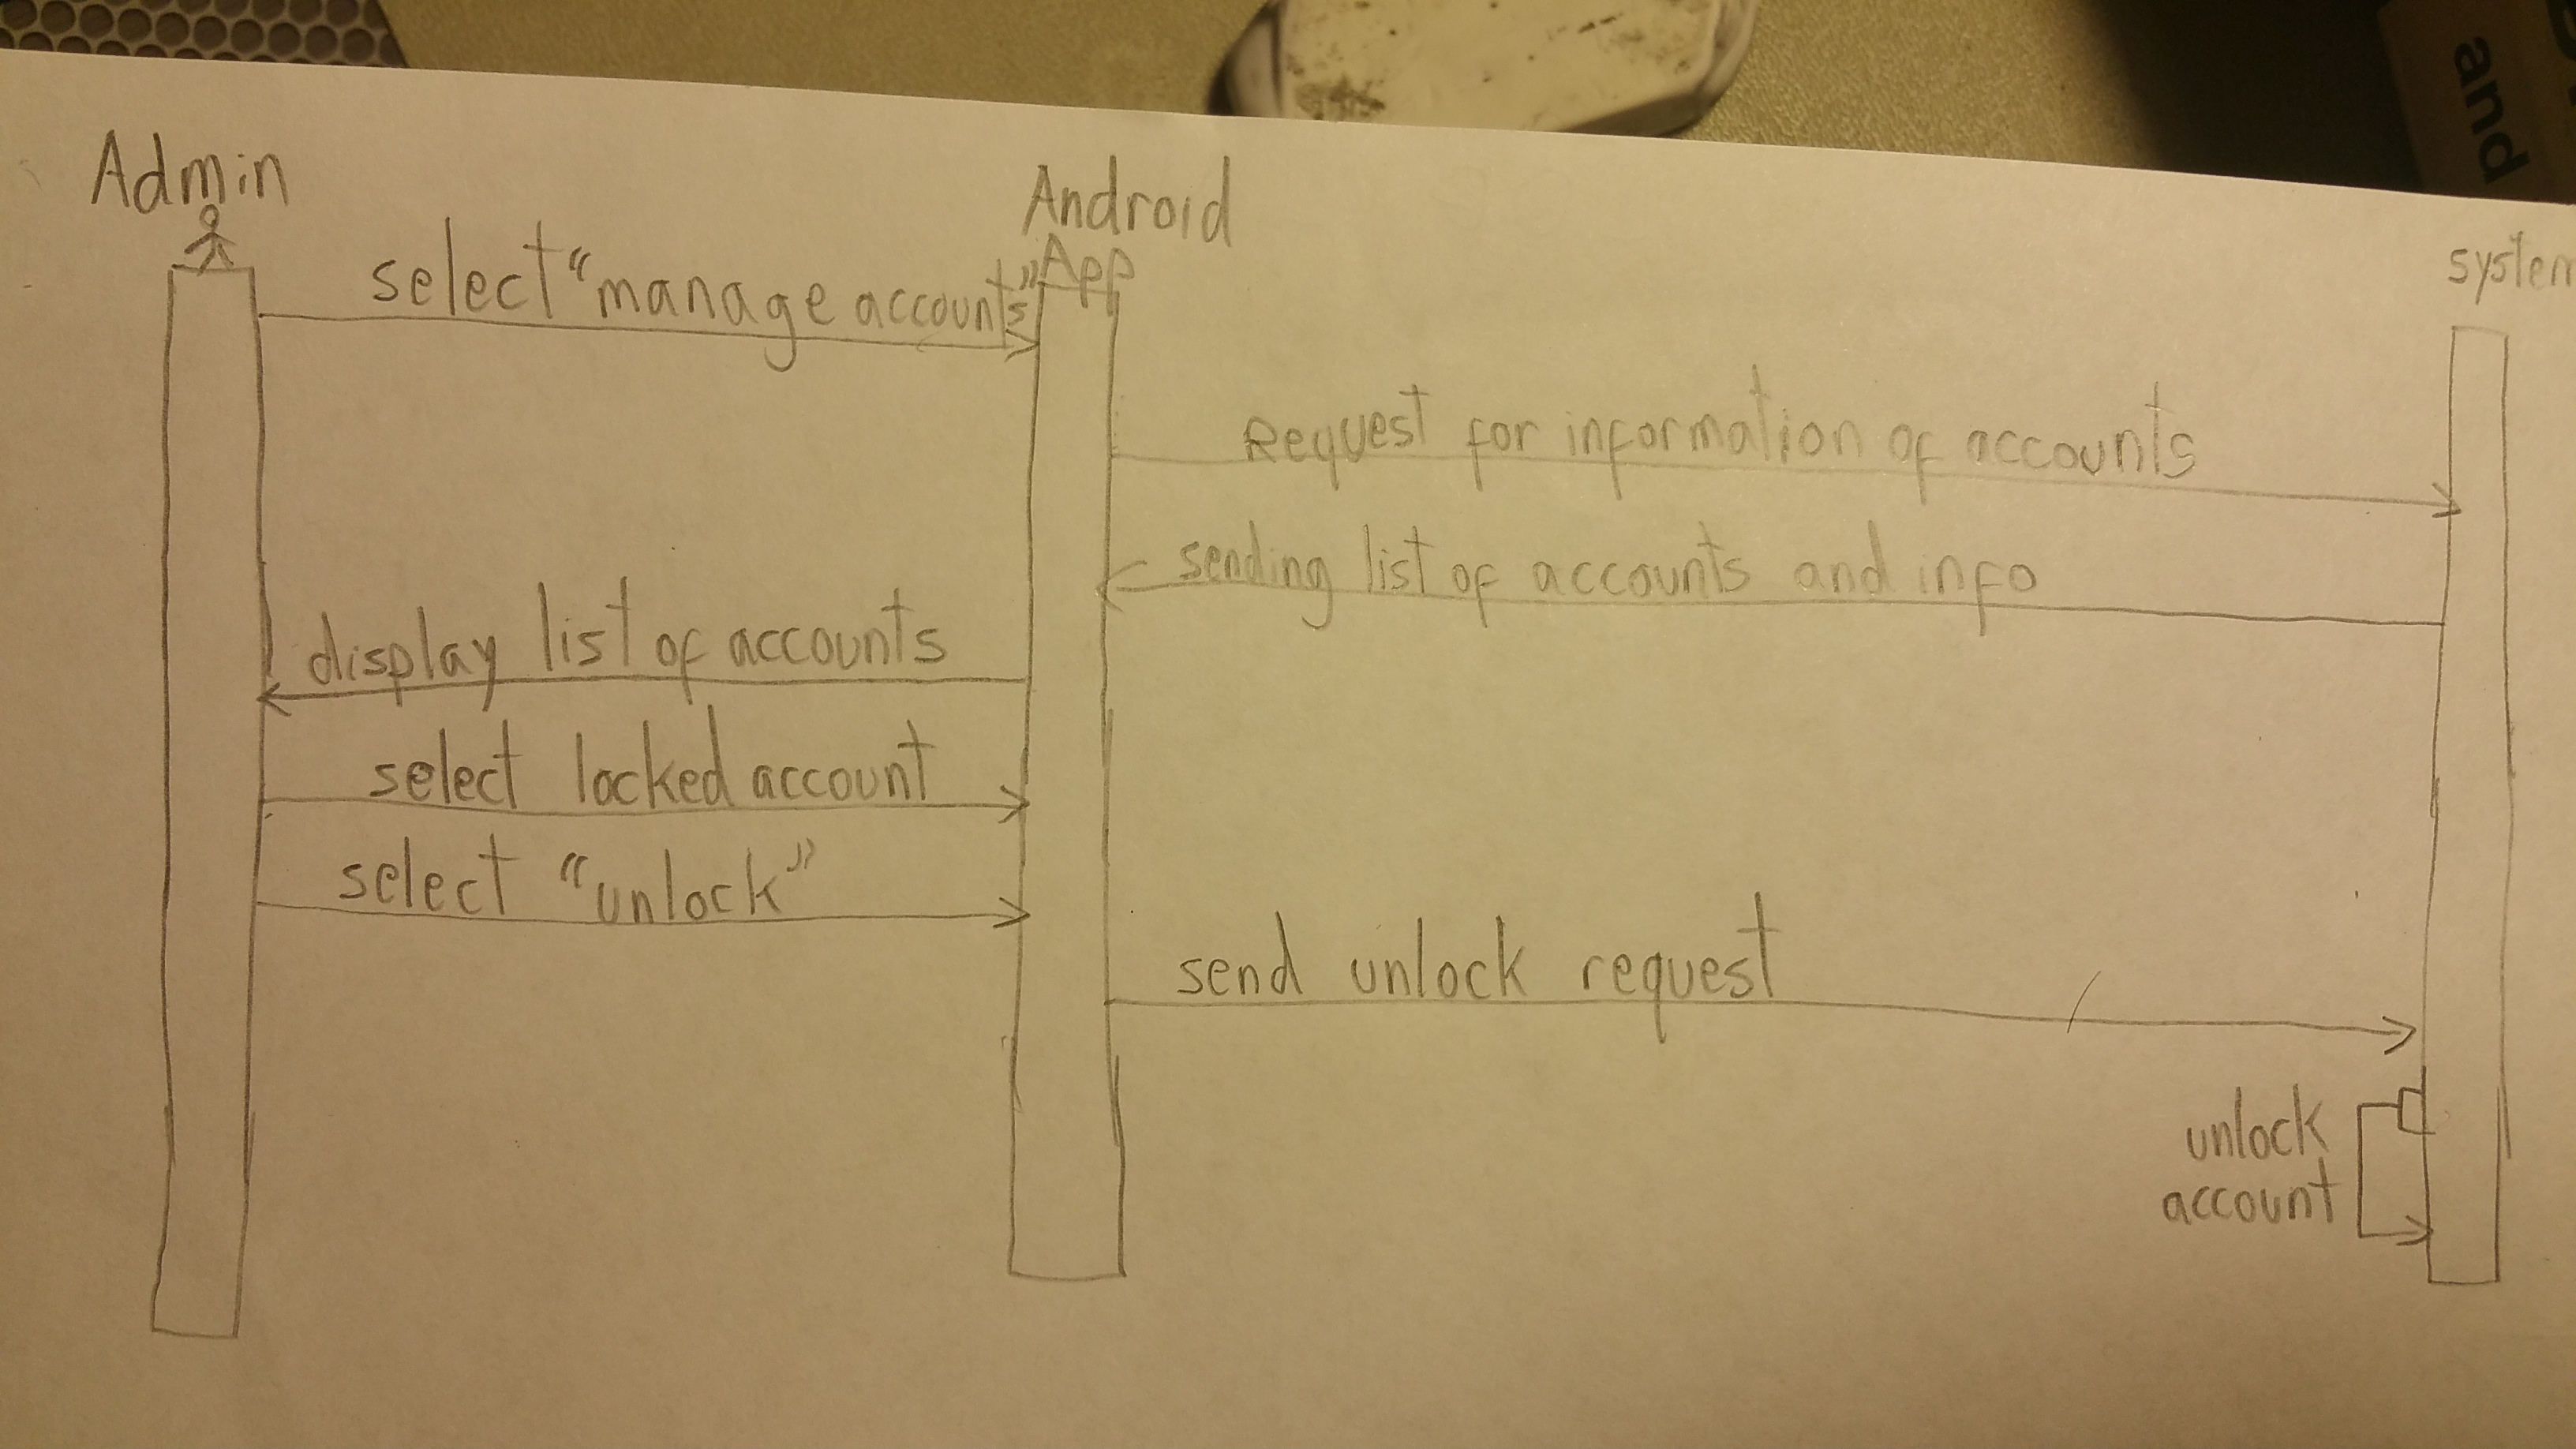 and
Admin
Android
App
system
select "manage accounts"
Request for information of accounts
sending list of accounts and info
display list of accounts
select locked account
select "unlock"
send unlock request
unlock
account